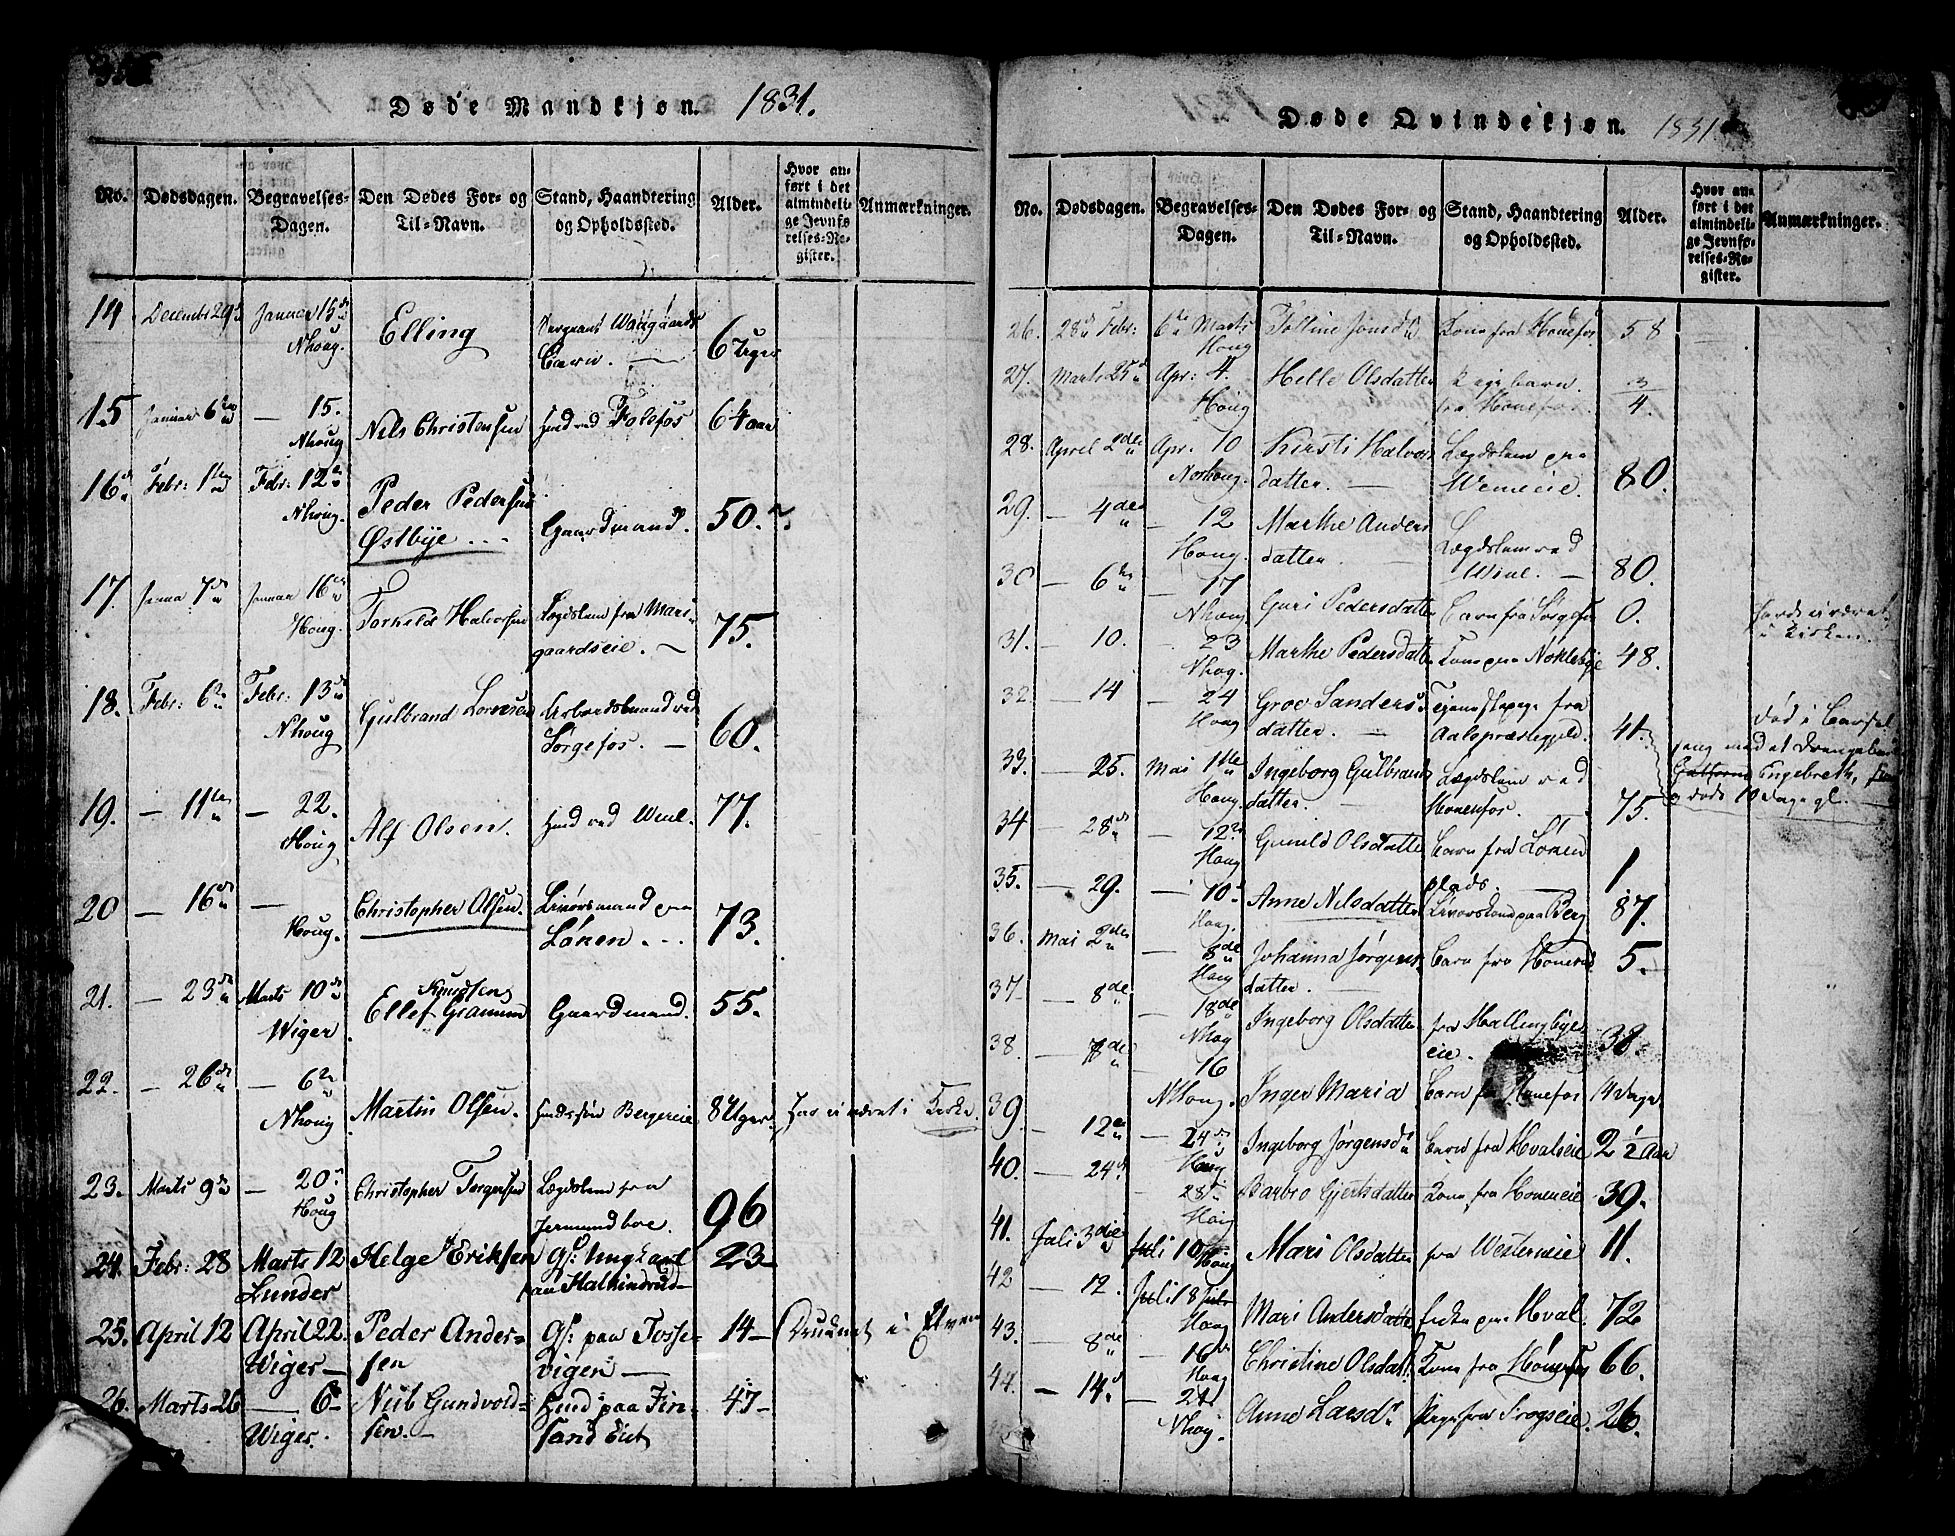 Døde Mandkjøn. 1831.
No. Dødsdagen. Begravelses-Dagen. Den Dødes For- og Til-Navn. Stand, Haandtering og Opholdssted. Alder. Hvor anført i det almindelige Jevnførelses-Register. Anmærkninger.
14 Decembr 29 Januar 15 Nhoug. Elling Sergeant Waagaards Barn. 6 Uger
15 Januar 6 — 15. Nhoug Nils Christensen ved Follefos 64 aar
16 Febr: 1 Febr: 12 Nhoug. Peder Pedersen Østbye Gaardmand. 50.
17. Janua 7 Januar 16 Houg. Torkild Halvorsen Lægdslem fra Mari-gaardseie. 75.
18. Febr: 6 Febr: 13 Nhoug Gulbrand Arbeidsmand ved Sørgefos. 60.
19. — 11 — 22. Houg Alf Olsen. ved 77.
20 — 16 — Houg. Christopher Olsen. paa Lønen 73.
21. — 23 Marts 10 Wiger Ellef Knudsen Gramum Gaardmand. 55.
22. — 26 — 6 Nhoug Martin Olsen. Bergereie 8 Uger. Har ei været i Kirke.
23. Marts 9 — 20 Houg Christopher Torgersen Lægdslem fra 96
24. Febr: 28 Marts 12 Lunder Helge Eriksen Gs: Ungkarl paa Halkinsrud 23
25. April 12 April 22. Wiger — Peder Andersen Gs: paa Tossevigen — 14 — Druknet i Elven
26. Marts 26 — 6 Wiger. Gundvoldsen. — paa Finsand Eiet 47 —
Døde Qvindekjøn. 1831
No. Dødsdagen. Begravelses-Dagen. Den Dødes For- og Til-Navn. Stand, Haandtering og Opholdssted. Alder. Hvor anført i det almindelige Jevnførelses-Register. Anmærkninger.
26. 28 Febr: 6 Marts Houg Jonsd Kone fra Hønefos 58
27. Marts 25 Apr: 4. Houg Helle Olsdatter barn. fra Hønefos. 3/4.
28. April 2 Apr. 10 Norhoug. Kirsti Halvors datter. Lægdslem paa 80.
29. — 4de — 12 Houg. Marthe Anders datter. Lægdslem ved 80.
30 — 6 — 17 Nhoug. Guri Pedersdatter Barn fra Sørgefos 0.
31. — 10. — 23 Nhog. Marthe Pedersdatter Kone paa Noklebye 48.
32 — 14 — 24 Houg Groe Sanders datter. fra Aalspræstegjeld. 41. død i Barsel seng med et Drengebarn Engebreth, døde 10 Dage gl.
33. — 25. Mai 1 Houg. Ingeborg Gulbrands datter. Lægdslem ved Hønenfos. 75.
34 — 28 — 12 Houg Gunild Olsdatter Barn fra Lønen plads. 1
35. — 29. — 10 Houg. Anne Nilsdatter paa Berg 87.
36. Mai 2 — 8de Houg Johanna Jørgens datter. Barn fra 5.
37 — 8de — 18de Nhog Ingeborg Olsdatter fra Hallingbye-eie. 38.
38. — — 16 NHoug. Inger Maria Barn fra Hønefos 14 Dage
39. — 12 — 24 Houg Ingeborg Jørgensd Barn fra Hvalseie 2 1/2 Aar
40. — 24 28 Houg Barbro Gjertsdatter Kone fra 39.
41. Juli 3die Juli 10 Houg Mari Olsdatter fra 11.
42 — 12. Juli 18 Houg Mari Andersdatter paa Hval. 72
43. — 8de — 16 Houg Christine Olsdatt: Kone fra Hønefos 66.
44. — 14. 21 Nhog. Anne Larsd Pige fra Frogseie. 26.